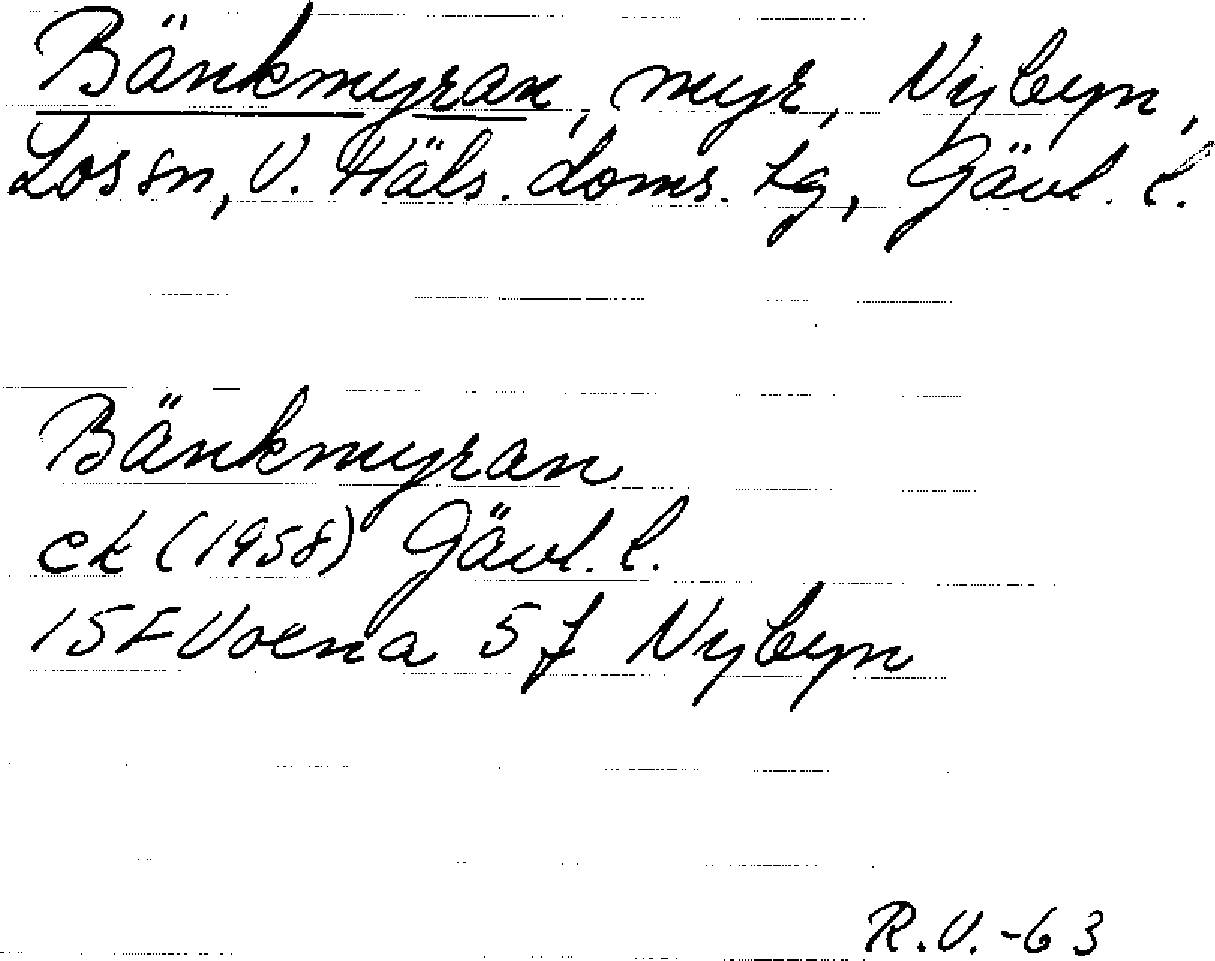 Bänkmyran, myr, Nybyn,
Los sn, V. Häls. doms. tg, Gävl. l.
Bänkmyran
ek (1958) Gävl. l.
15F Voxna 5f Nybyn
R.V. -63